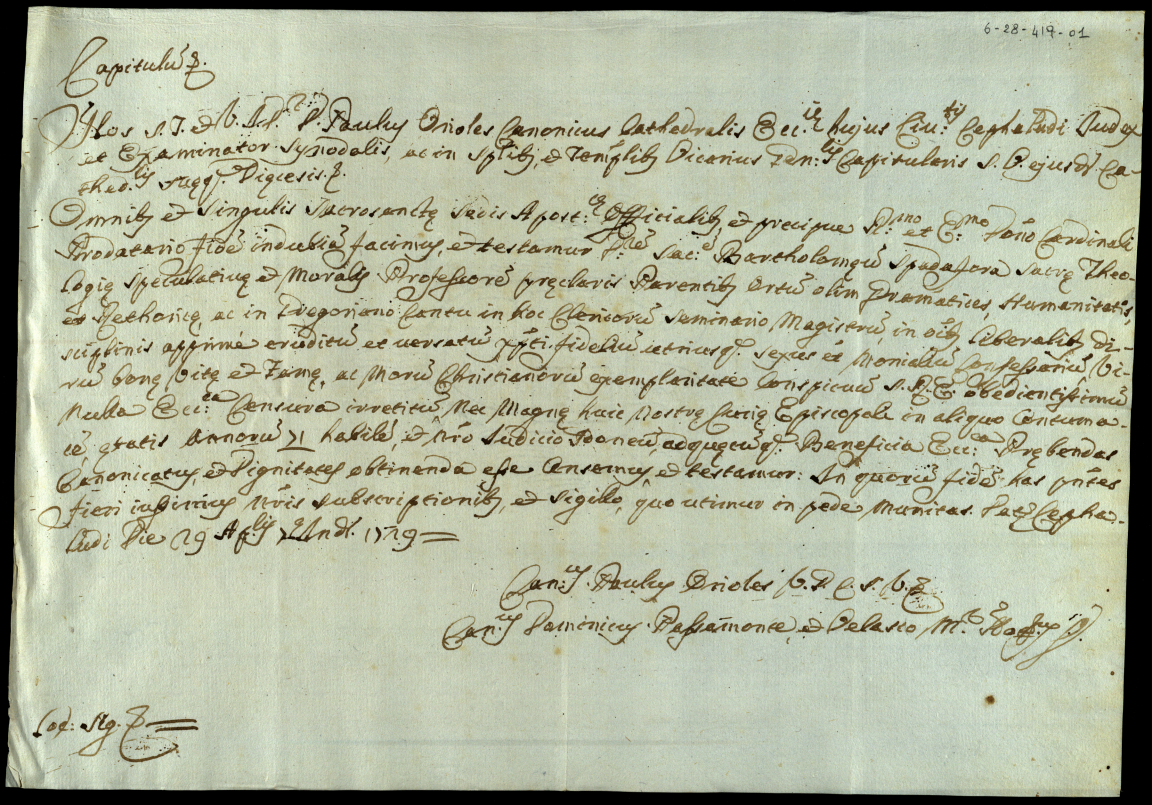 6-28-419-01
Capitulũ
Nos S. T. et V. I. D.r D. Paulus Orioles Canonicus Cathedralis Ecc.ię hujus Ciu.tis Cephaludi Iudex
et Examinator Synodalis, ac in Splibq et Temp̃libq Vicarius Gen:lis Capitularis S. V. ejusdẽ Ca-
thed:lis Dięcesis
Omnibq et Singulis Sacrosanctę Sedis Apost:cę Officialibq, et precipue R.mo et E.mo Dño Cardinali
Prodatario fidẽ indubiã facimus, et testamur Sac: Bartholomęũ Spadafora Sacrę Theo-
logię Speculatiuę et Moralis Professorẽ pręclaris Parentibq Ortũ olim Gramatices, Humanitatis,
et Rethoricę, ac in Gregoriano Cantu in hoc Clericorũ Seminario Magistrũ, in oĩbq liberalibq di-
sciplinis apprimè eruditũ et uersatũ xp̃ti fideliũ utriusq. Sexus et Monialiũ Confessariũ, Vi-
rũ bonę Vitę et Famę, ac Morũ Christianorũ exemplaritate Conspicuũ S. R. E. obedientissimũ
Nulla Ecc:ca Censura irretitũ, Nec Magnę huic Nostrę Curię Episcopali in aliquo Contuma-
cẽ, ętatis Annorũ habilẽ, et Nr̃o Iudicio Idoneũ, ad quęcũq. Beneficia Ecc:ca Prębendas
Canonicatus, et Dignitates obtinenda esse Censemus, et testamur: In quorũ fidẽ has pñtes
fieri iussimus Nr̃is Subscriptionibq, et Sigillo, quo utimur in pede Munitas. Datę Cepha-
ludi Die 29 Ap:lis Ind. 1729
Can:us Paulus Orioles V. G. C. S. V.
Can:us Dominicus Passamonte, et Velasco, M.r
Loc: Sig.